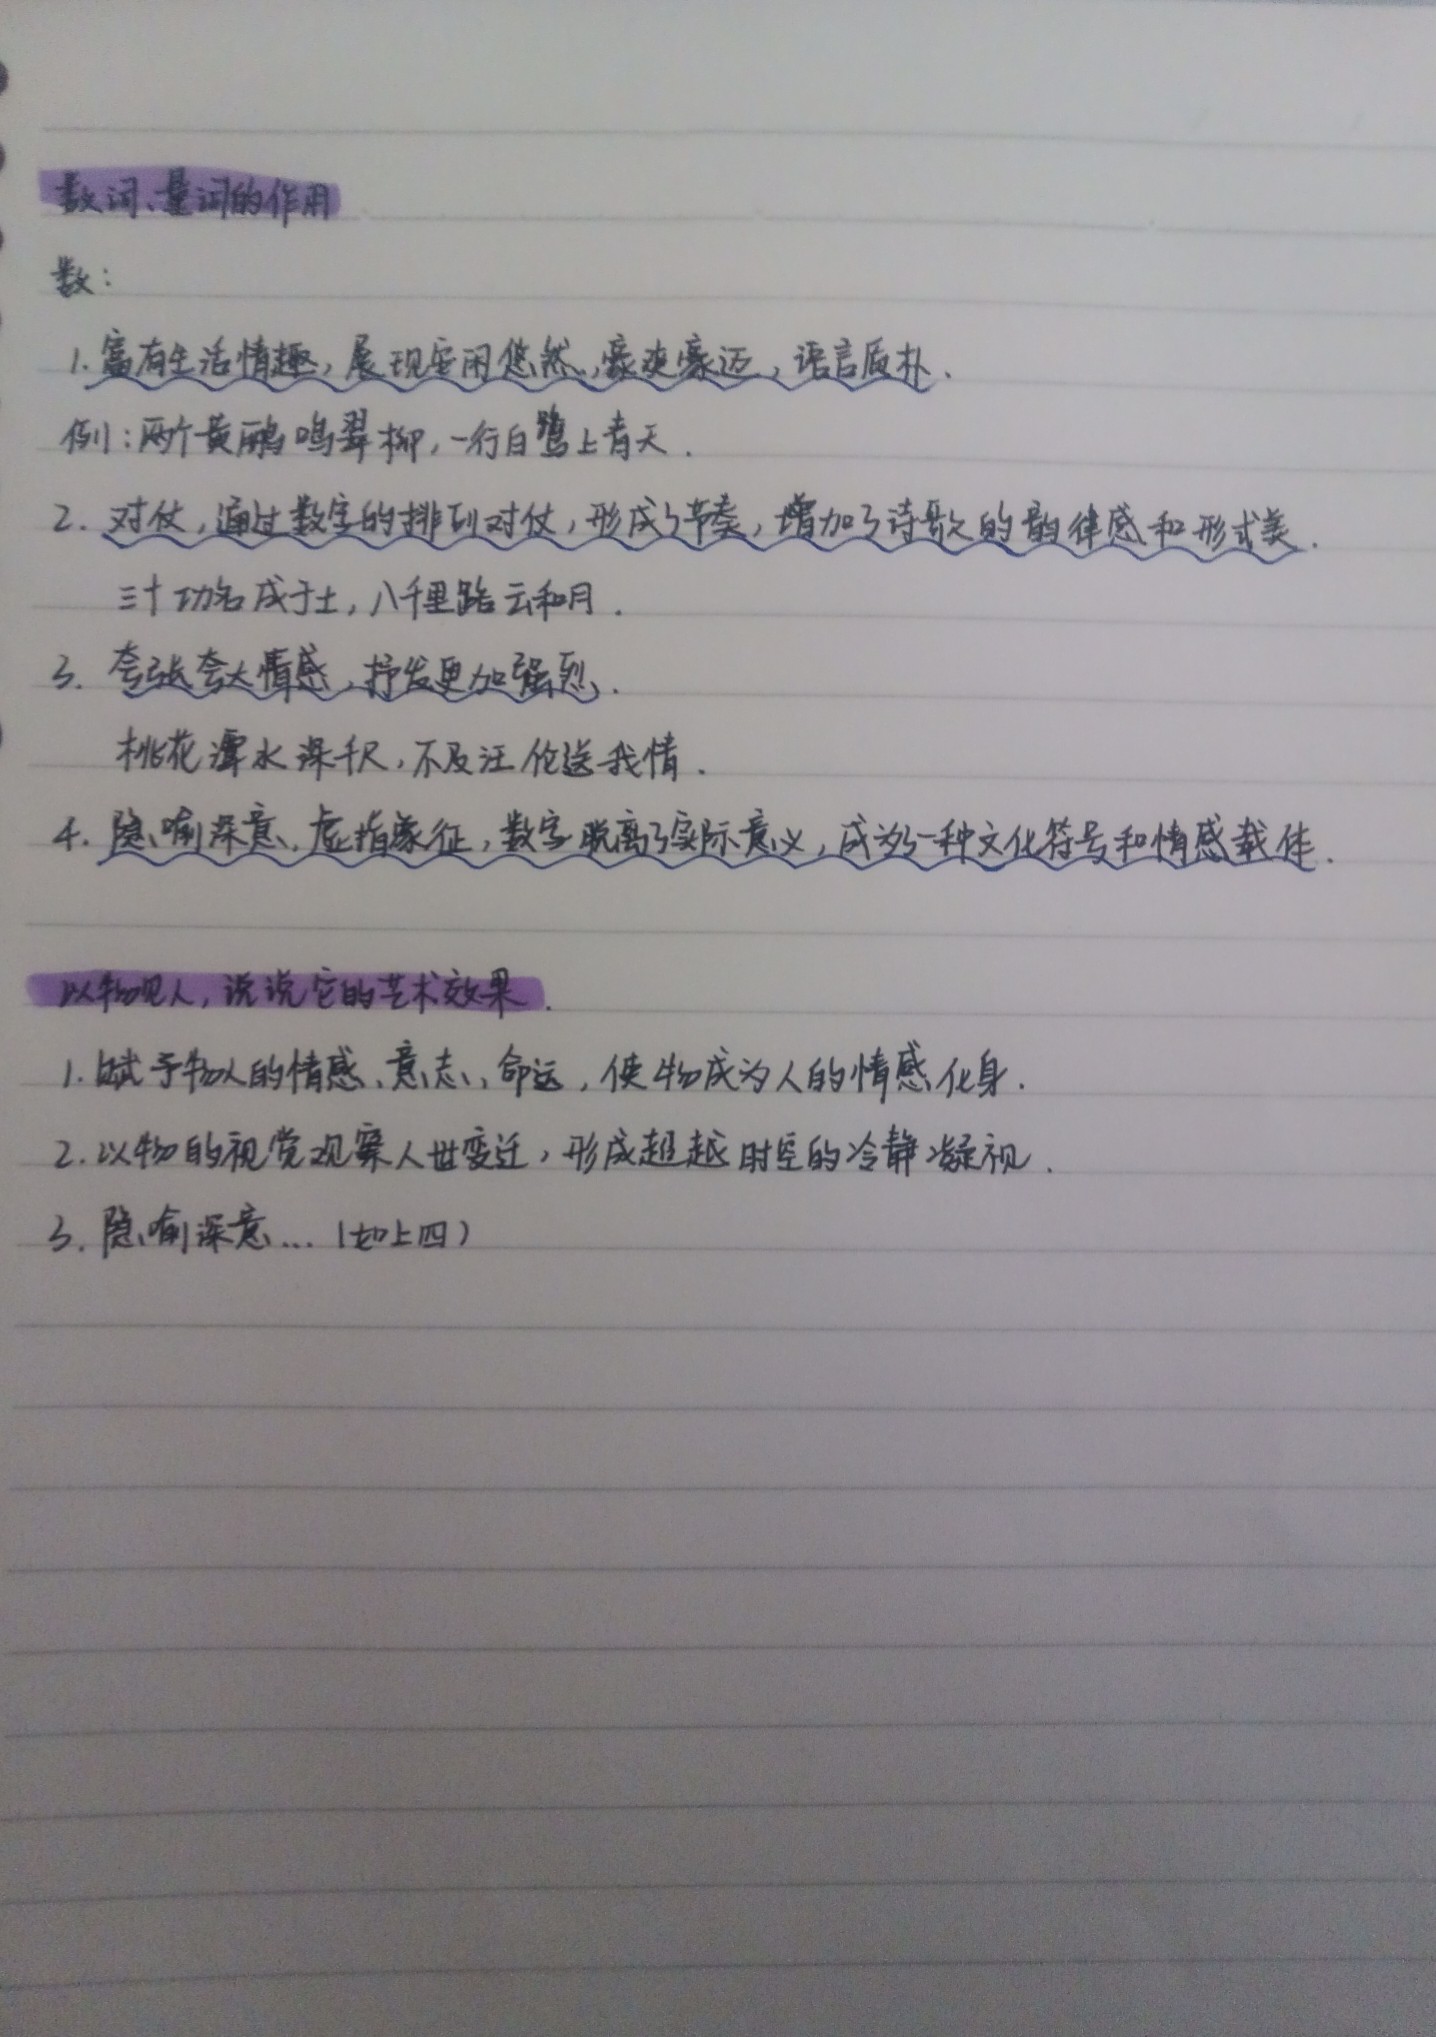 数词、量词的作用
数：
1.富有生活情趣，展现安闲悠然，豪爽豪迈，语言质朴.
例：两个黄鹂鸣翠柳，一行白鹭上青天.
2.对仗，通过数字的排列对仗，形成了节奏，增加了诗歌的韵律感和形式美.
三十功名成于土，八千里路云和月.
3.夸张夸大情感，抒发更加强烈.
桃花潭水深千尺，不及汪伦送我情.
4.隐喻深意、虚指象征，数字脱离了实际意义，成为了一种文化符号和情感载体.
以物观人，说说它的艺术效果.
1.赋予物人的情感、意志、命运，使物成为人的情感化身.
2.以物的视觉观察人世变迁，形成超越时空的冷静凝视.
3.隐喻深意...（如上四）